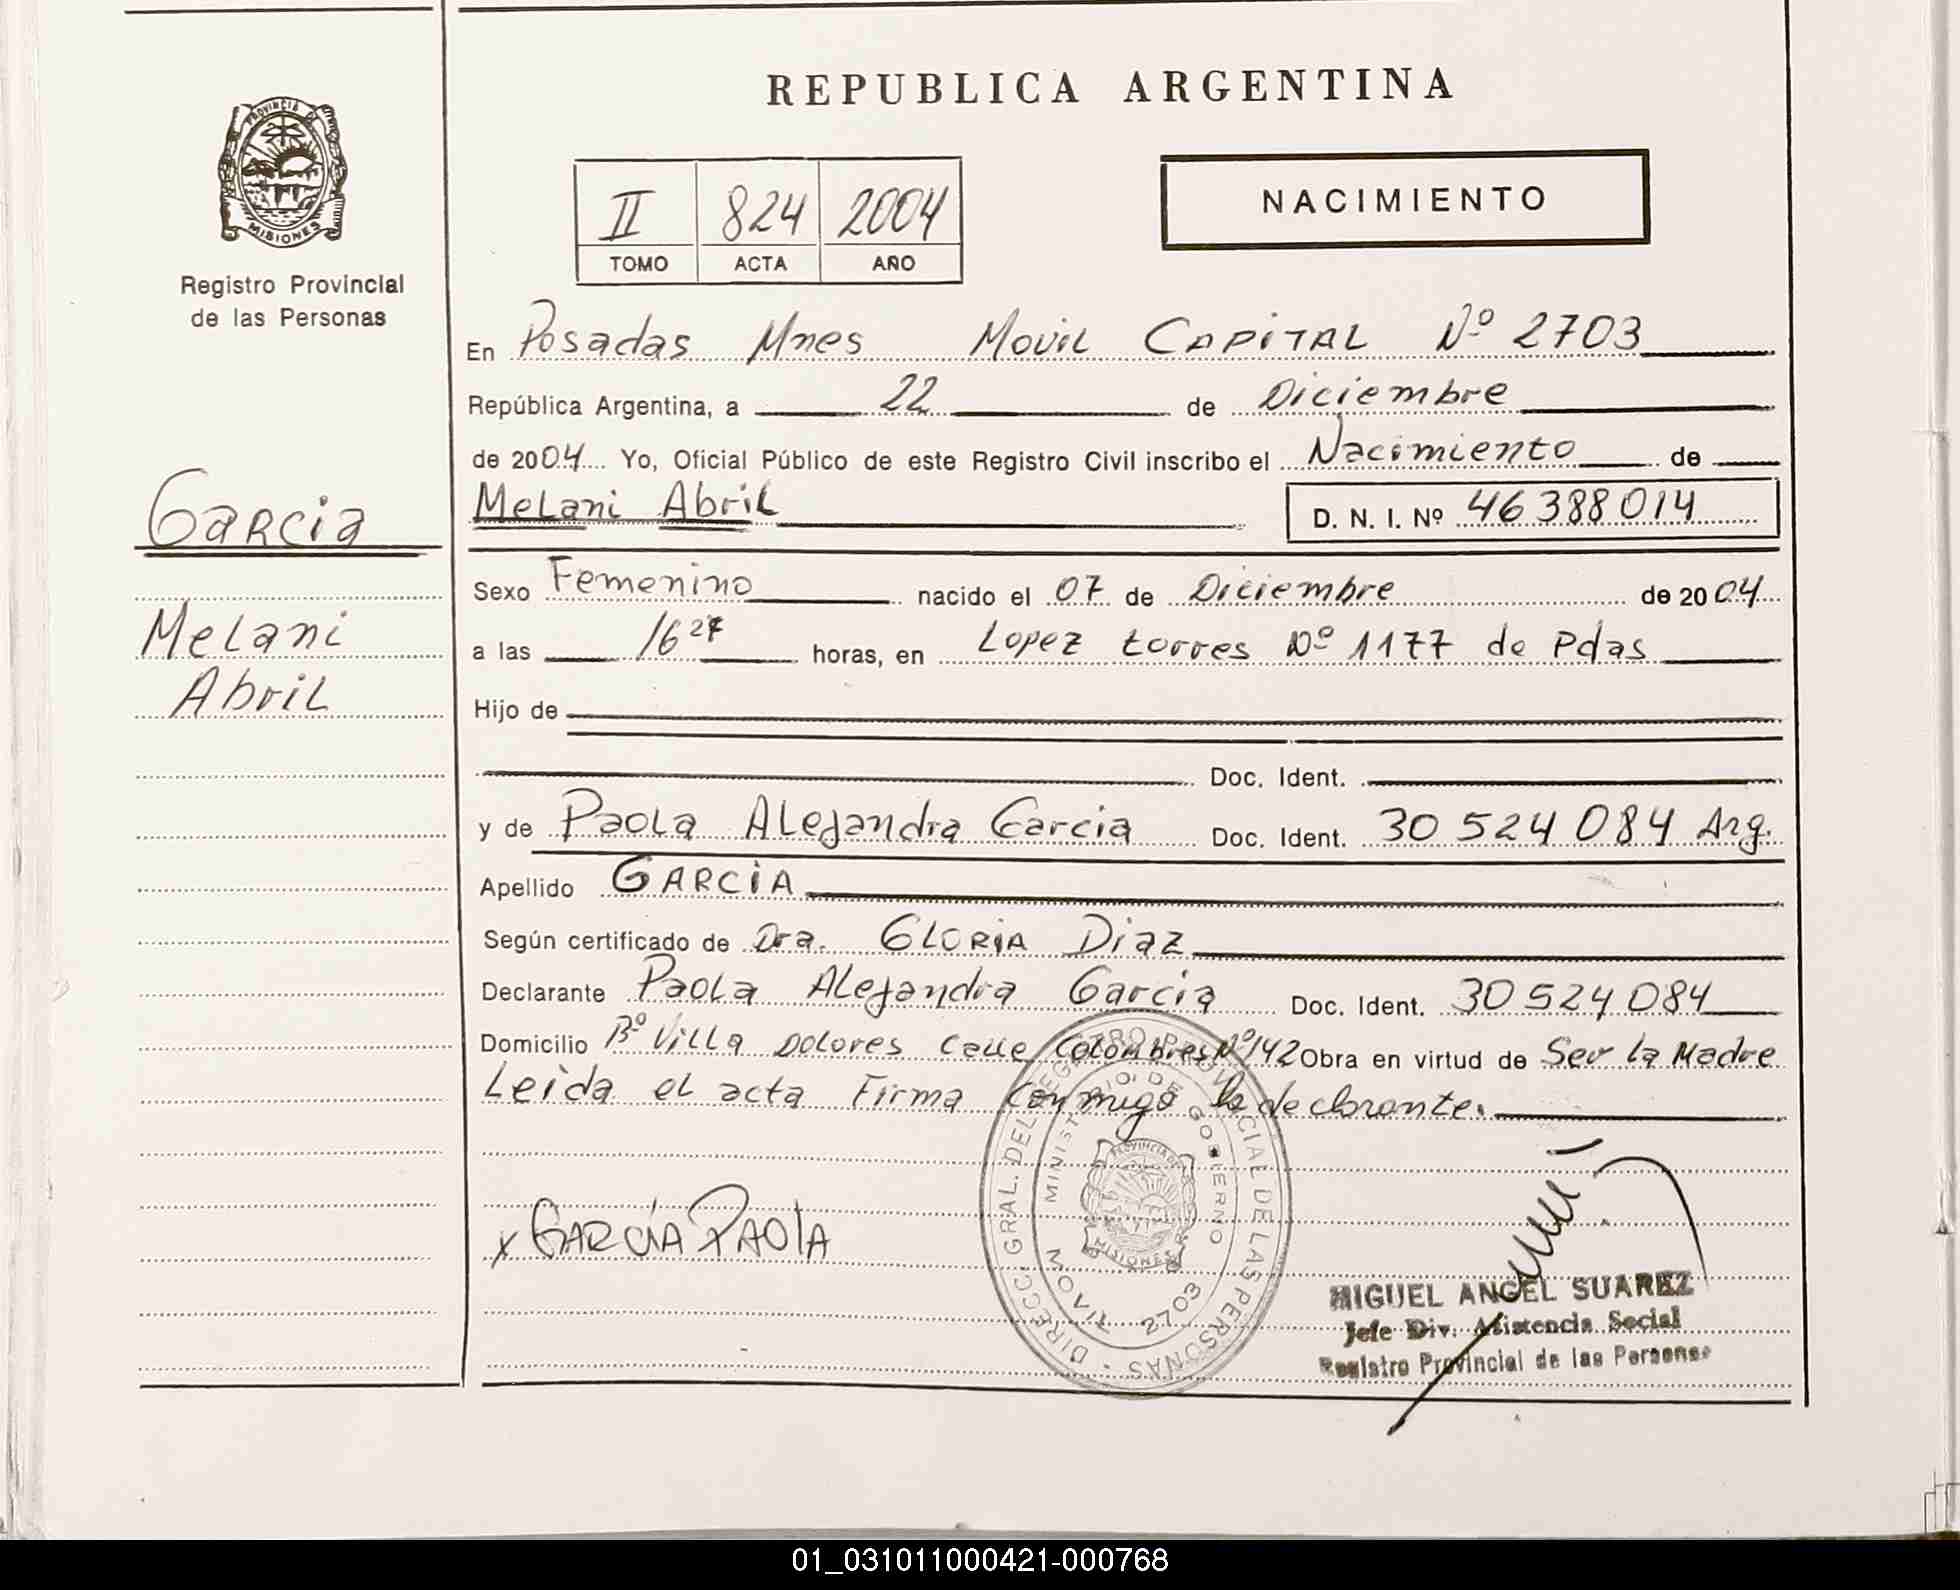 REPUBLICA ARGENTINA
PROVINCIA DE
MISIONES
Registro Provincial
de las Personas
II 824 2004
TOMO ACTA AÑO
NACIMIENTO
En Posadas Mnes Movil CAPITAL Nº 2703
República Argentina, a 22 de Diciembre
de 2004 Yo, Oficial Público de este Registro Civil inscribo el Nacimiento de
Melani Abril D. N. I. Nº 46388014
Garcia
Melani
Abril
Sexo Femenino nacido el 07 de Diciembre de 2004
a las 16 27 horas, en Lopez torres Nº 1177 de Pdas
Hijo de
Doc. Ident.
y de Paola Alejandra Garcia Doc. Ident. 30 524 084 Arg.
Apellido GARCIA
Según certificado de Dra. GLORIA Diaz
Declarante Paola Alejandra Garcia Doc. Ident. 30 524 084
Domicilio Bº Villa Dolores calle Colombres Nº 142 Obra en virtud de Ser la Madre
Leida el acta Firma conmigo la declarante.
x GARCÍA PAOLA
DIRECC. GRAL. DEL REGISTRO PROVINCIAL DE LAS PERSONAS
MINISTERIO DE GOBIERNO
PROVINCIA DE
MISIONES
MOVIL 2703
MIGUEL ANGEL SUAREZ
Jefe Div. Asistencia Social
Registro Provincial de las Personas
01_031011000421-000768